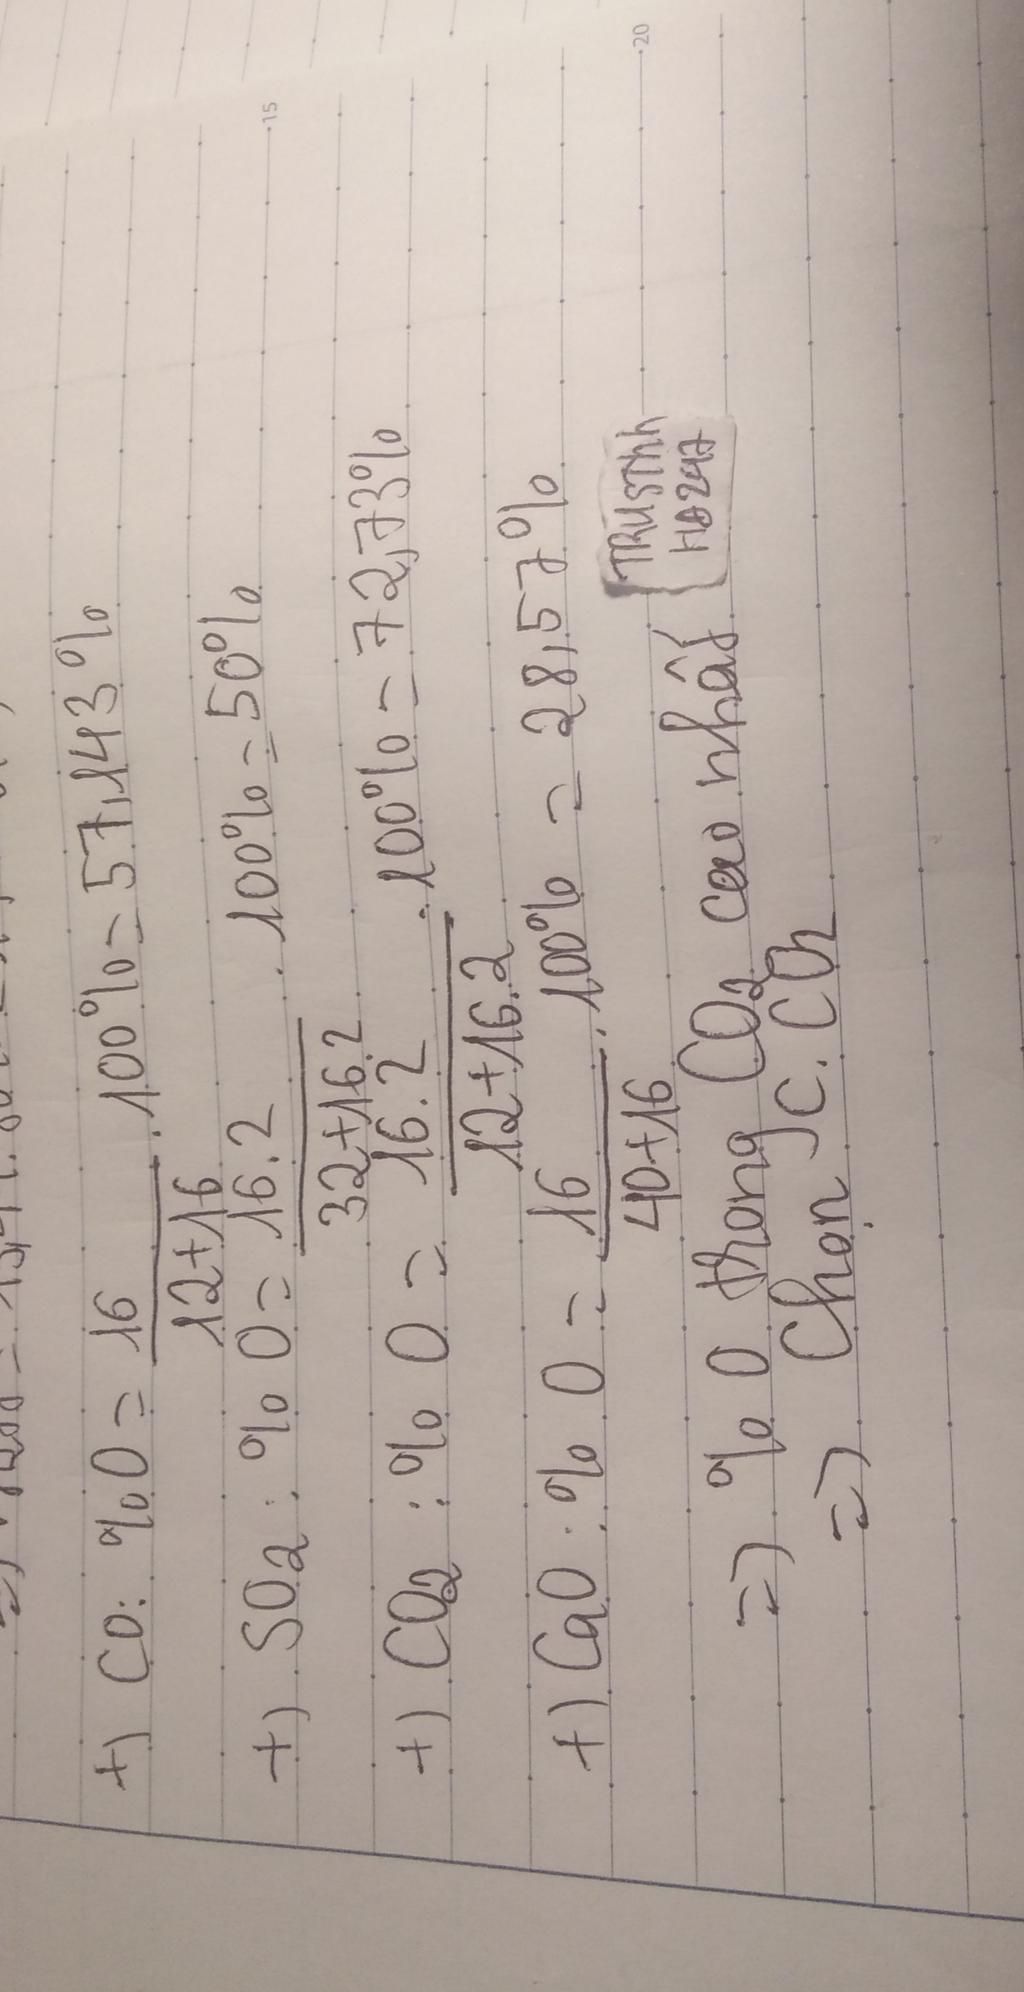 +) CO: %O = 16/12+16 . 100% = 57,143%
+) SO2: %O = 16.2/32+16.2 . 100% = 50%
+) CO2: %O = 16.2/12+16.2 . 100% = 72,73%
+) CaO: %O = 16/40+16 . 100% = 28,57%
=) % O trong CO2 cao nhất
=) Chọn C. CO2
15
20